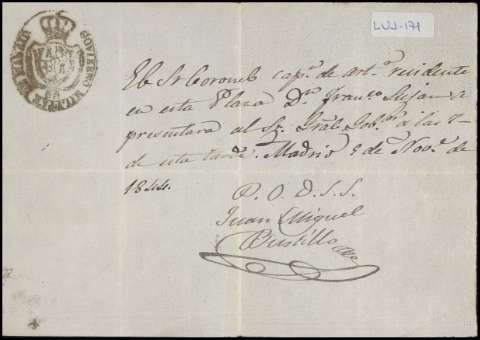 GOBIERNO MILITAR DE MADRID
LUJ-171
El Sr Coronel capn. de arta. residente
en esta Plaza Dn. Franco Lujan se
presentara al Sr. Gral. Gobor. a las 7
de esta tarde. Madrid 9 de Nove. de
1844.
P. O. D. S. S.
Juan Miguel
Bustillo